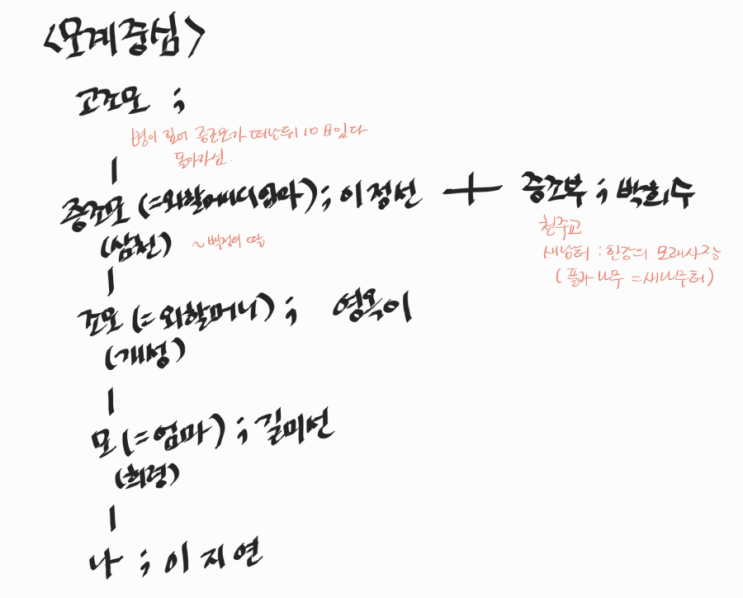 <모계중심>
고조모 ;
병이 깊어 증조모가 떠난뒤 10일있다
돌아가심.
증조모 (=외할머니엄마) ; 이정선 + 증조부 ; 박희수
(삼천) ~백정의 딸
천주교
새남터 : 한강의 모래사장
(풀과 나무 = 새나무터)
조모 (= 외할머니) ; 영옥이
(개성)
모 (=엄마) ; 길미선
(희령)
나 ; 이지연